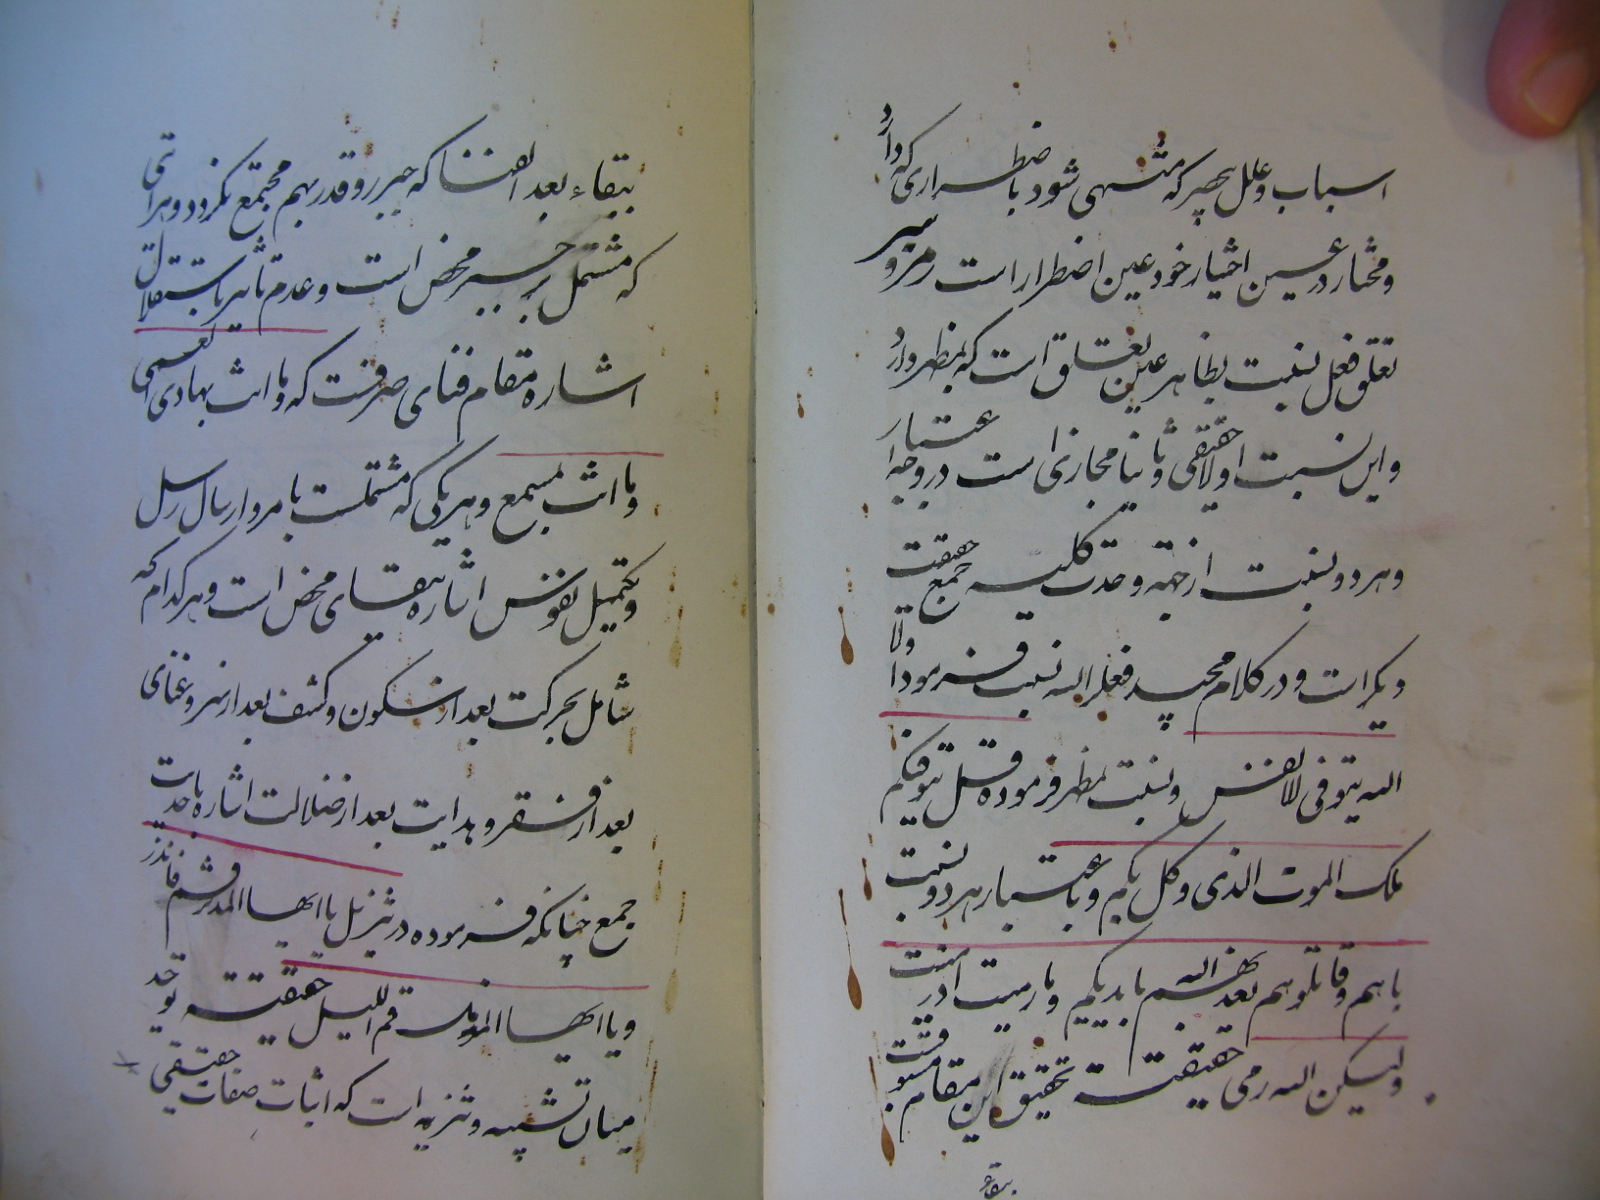 اسباب و علل بجبر که منتهی شود باضطراری که دارد
و مختار در عین اختیار خود عین اضطرار است رمز و سر
تعلق فعل بنسبت بظاهر عین تعلق است که بمظهر دارد
و این نسبت اولا حقیقی و ثانیا مجازی است در وجه اعتبار
و هر دو نسبت از جهته وحدت کلیه جمع حقیقت
دیگر است و در کلام مجید فعل را اله نسبت فرمود اولا
الله یتوفی الانفس و نسبت بمظهر فرموده قل یتوفیکم
ملک الموت الذی وکل بکم و باعتبار هر دو نسبت
با هم و قاتلوهم یعذبهم الله بایدیکم و ما رمیت اذ رمیت
ولیکن الله رمی حقیقت تحقیق این مقام منوقفست
ببقاء
ببقاء بعد الفنا که جبر و قدر بهم مجتمع نکردد و هر اتی
که مشتمل بر جبر محض است و عدم تاثیر باستقلال
اشاره مقام فنای صرفت که و ما انت بهادی العمی
و ما انت بمسمع و هر یکی که مشتملست بامر و ارسال رسل
و تکمیل نفوس اشاره ببقای محض است و هر کدام که
شامل بحرکت بعد از سکون و کشف بعد از ستر و غنای
بعد از فقر و هدایت بعد از ضلالت اشاره باحدیت
جمع چنانکه فرموده در تنزیل یا ایها المدثر قم فانذر
و یا ایها المزمل قم اللیل حقیقت توحید
میان تشبیه و تنزیه است که اثبات صفات حقیقی